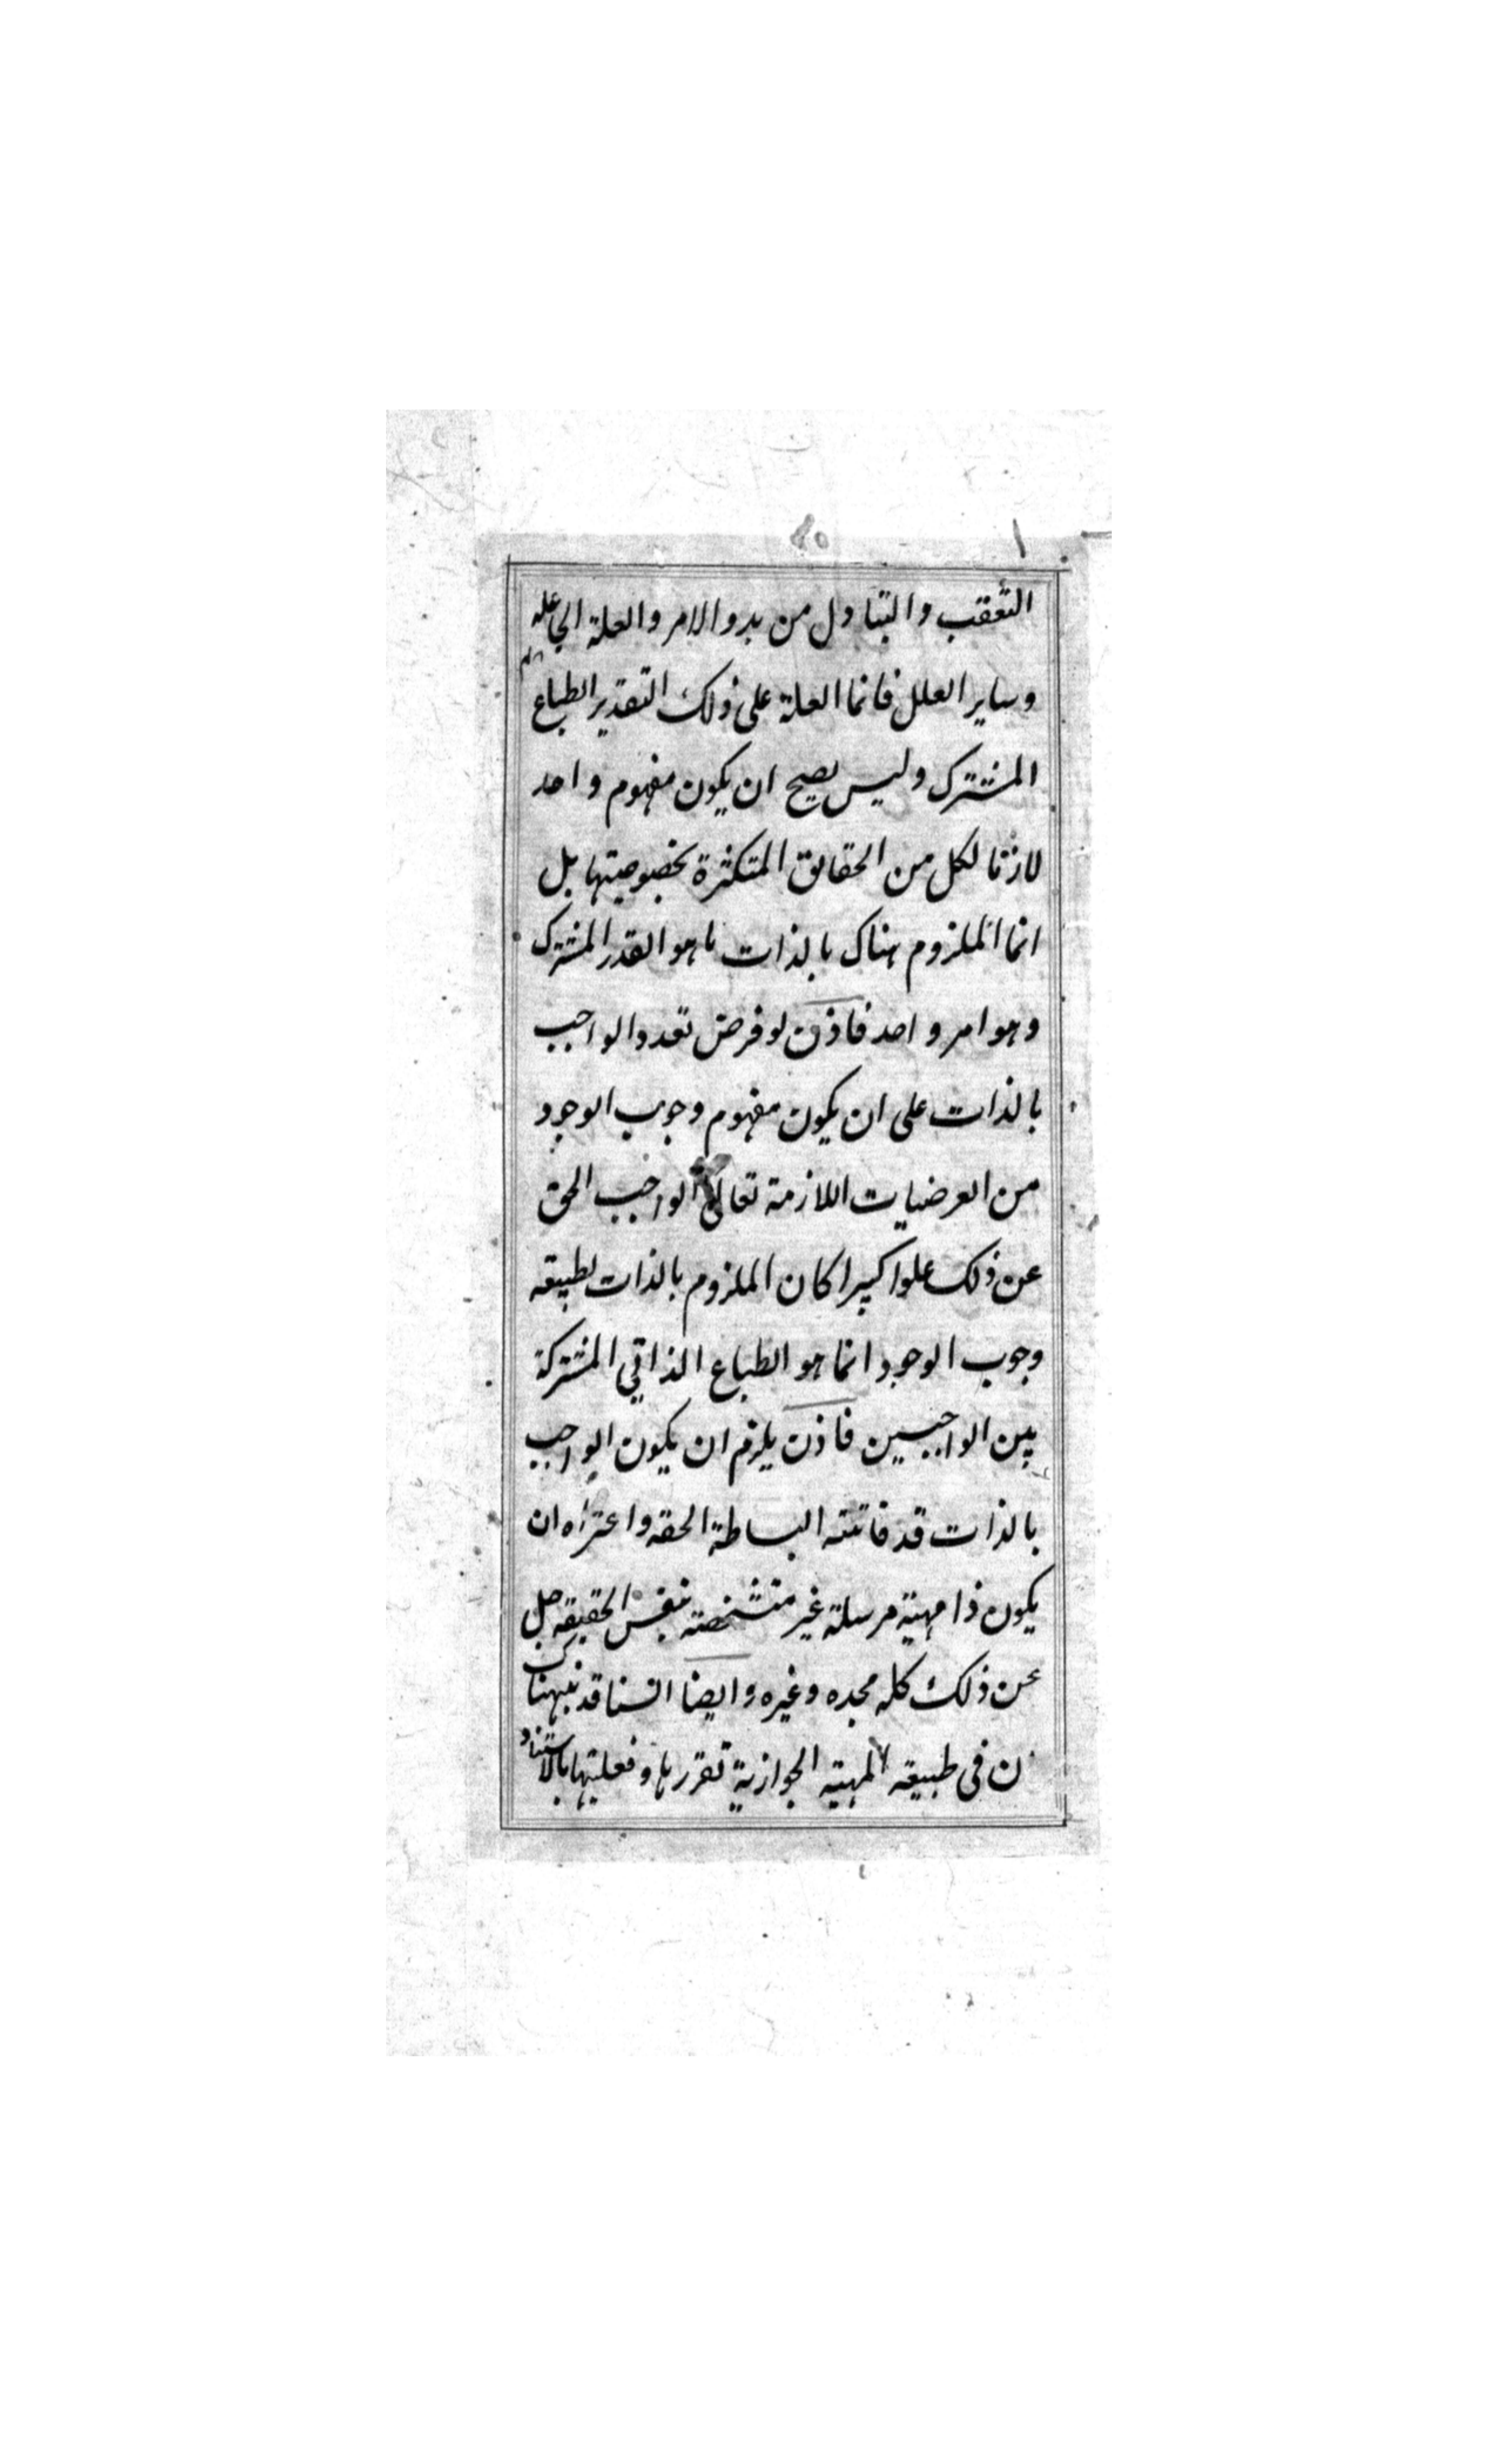 التعقب والتبادل من بدو الامر والعلة الجاعله
وساير العلل فانما العلة على ذلك التقدير الطباع
المشترك وليس يصح ان يكون مفهوم واحد
لازما لكل من الحقايق المتكثرة بخصوصيتها بل
انما الملزوم هناك بالذات ما هو القدر المشترك
وهو امر واحد فاذن لو فرض تعدد الواجب
بالذات على ان يكون مفهوم وجوب الوجود
من العرضيات اللازمة تعالى الواجب الحق
عن ذلك علوا كبيرا كان الملزوم بالذات لطبيعه
وجوب الوجود انما هو الطباع الذاتي المشتركة
بين الواجبين فاذن يلزم ان يكون الواجب
بالذات قد فاتته البساطة الحقه واعتراه ان
يكون ذا مهية مرسلة غير متشخصته بنفس الحقيقه جل
عن ذلك كله مجده وغيره وايضا السنا قد نبهناك
ن فى طبيعه المهيته الجوازية تقررها وفعليتها بالاستناد